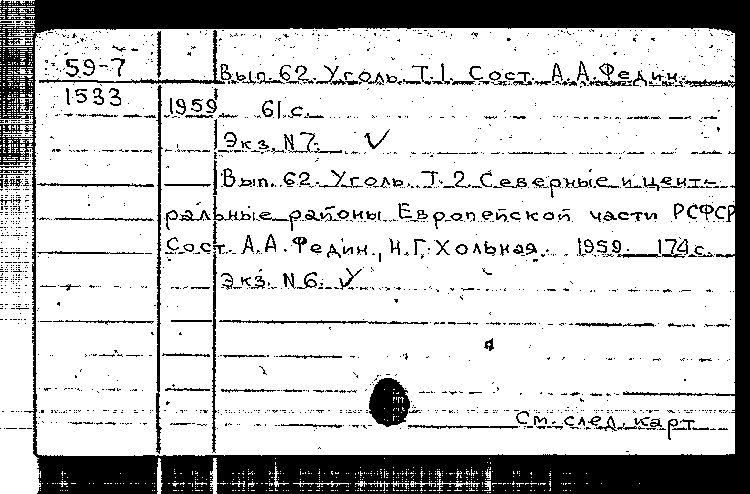 59-7 Вып. 62. Уголь. Т.1. Сост. А.А.Федин.
1533 1959 61 с.
Экз. N 7. ✓
Вып. 62. Уголь. Т. 2. Северные и цент-
ральные районы Европейской части РСФСР
Сост. А.А. Федин, Н.Г. Хольная. 1959. 174 с.
Экз. N 6. ✓
См. след. карт